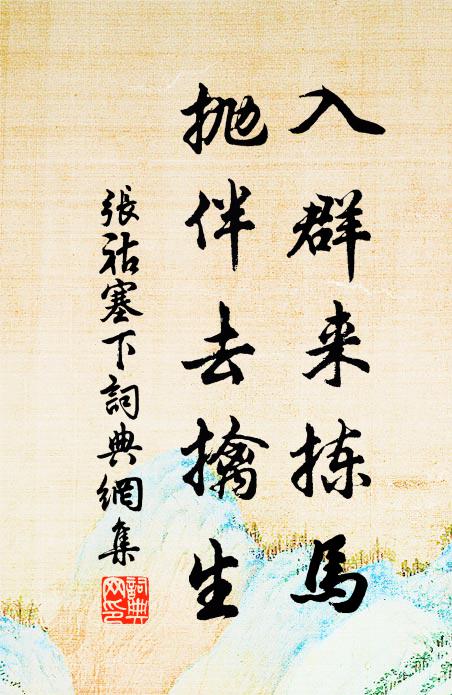 入群来拣馬
抛伴去擒生
張祜塞下詞典網集
詞典網印